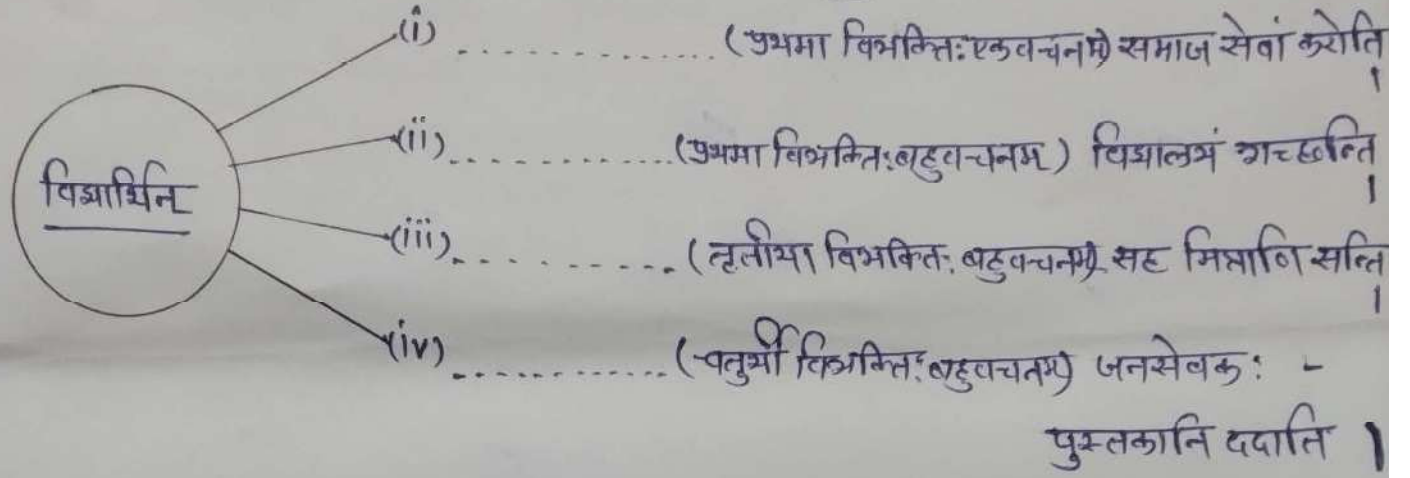 (i) .............. (प्रथमा विभक्ति: एकवचनम्) समाज सेवां करोति ।
(ii) .............. (प्रथमा विभक्ति: बहुवचनम्) विद्यालयं गच्छन्ति ।
विद्यार्थिन्
(iii) .............. (तृतीया विभक्ति: बहुवचनम्) सह मित्राणि सन्ति ।
(iv) .............. (चतुर्थी विभक्ति: बहुवचनम्) जनसेवक: -
पुस्तकानि ददाति ।